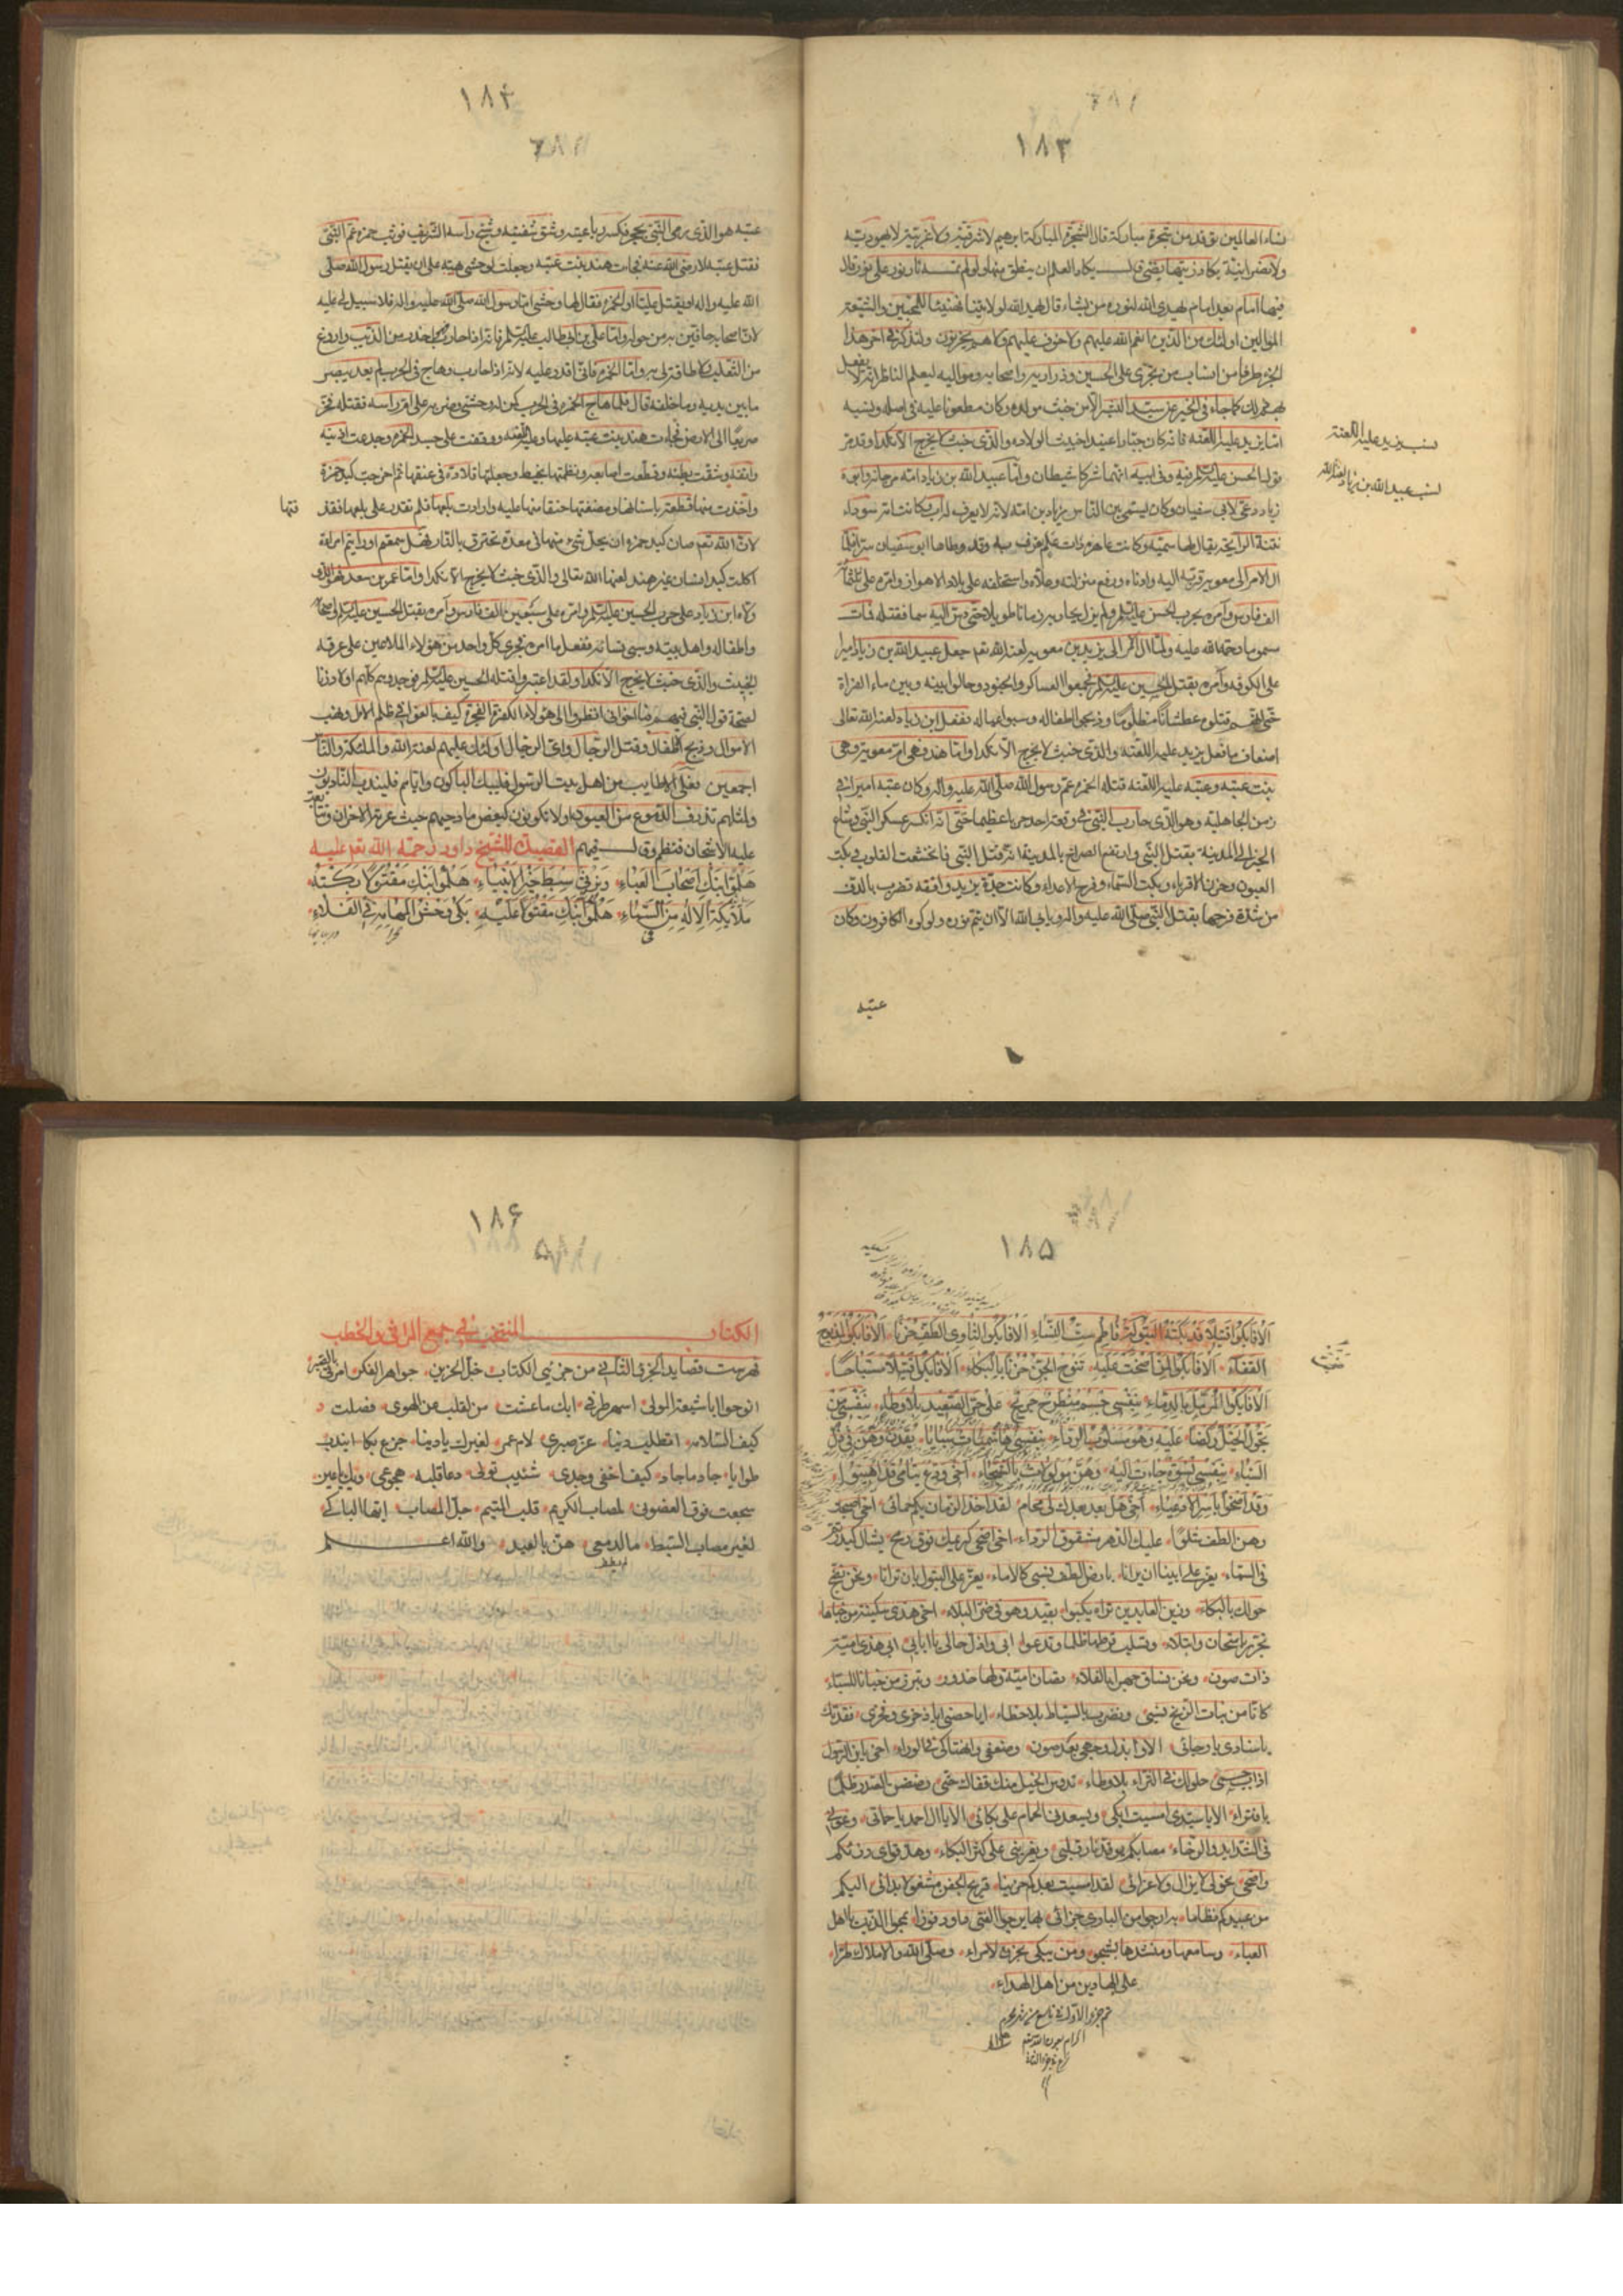 ١٨٣
نساء العالمين توقد من شجرة مباركة قال الشجرة المباركة ابرهيم لا شرقية ولا غربية لا يهودية
ولا نصرانية يكاد زيتها يضئ قال يكاد العلم ان ينطق منها ولو لم تمسسه نار نور على نور قال
فيها امام بعد امام يهدي الله لنوره من يشاء قال يهد الله لولايتنا فهنيئا للمحبين والشيعة
الموالين اولئك من الذين انعم الله عليهم ولا خوف عليهم ولا هم يحزنون ولنذكر في اخر هذا
الجزء طرفا من انساب من تجرى على الحسين وذراريه واصحابه ومواليه ليعلم الناظر انه لا يفعل
كما جاء في الخبر عن سيد البشر الا من خبث مولده وكان مطعونا عليه في اصله ونسبه
اما يزيد عليه اللعنة فانه كان جبارا عنيدا خبيث الولادة والذى خبث لا يخرج الا نكدا وقد مر
قول الحسن عليه السلم فيه وفي ابيه انهما شركا شيطان واما عبيد الله بن زياد امه مرجانة وابوه
نسب يزيد عليه اللعنة
نسب عبيد الله بن زياد لعنه الله
زياد دعى لابى سفيان وكان يسمى بين الناس بزياد بن امه لانه لا يعرف له اب وكانت امه سوداء
نتنة الرايحة يقال لها سميه وكانت عاهرة ذات علم وقد وطاها ابو سفيان سرا فلما
ال الامر الى معوية قربه اليه وادناه ورفع منزلته وعلاه واستخلفه على بلاد الاهواز وامره على
الف فارس وامره بحرب الحسن عليه السلم ولم يزل يحاربه زمانا طويلا حتى دس اليه سما فقتله فمات
مسموما رحمة الله عليه ولما ال الامر الى يزيد بن معوية لعنه الله تعم جعل عبيد الله بن زياد اميرا
على الكوفة وامره بقتل الحسين عليه السلم فجمعوا العساكر والجنود وحالوا بينه وبين ماء الفراة
حتى قتلوه عطشانا مظلوما وذبحوا اطفاله وسبوا عياله ففعل ابن زياد لعنه الله تعالى
اضعاف ما فعل يزيد عليه اللعنه والذى خبث لا يخرج الا نكدا واما هند فهى ام معوية وهى
بنت عتبه وعتبه عليه اللعنه قتله الحمزه عم رسول الله صلى الله عليه واله وكان عتبه اميرا في
زمن الجاهلية وهو الذى حارب النبى في وقعة احد حربا عظيما حتى انه انكسر عسكر النبى وشاع
الخبر الى المدينة بقتل النبى وارتفع الصراخ بالمدينة انه قتل النبى فانخشعت القلوب وبكت
العيون وحزن الاقرباء وبكت السماء وفرح الاعداء وكانت جدة يزيد واقفه تضرب بالدف
من شدة فرحها بقتل النبى صلى الله عليه واله ويابى الله الا ان يتم نوره ولو كره الكافرون وكان
عتبه
١٨٤
عتبه هو الذى رمى النبى بحجر فكسر رباعيته وشق شفتيه وشج راسه الشريف فوثب حمزه عم النبى
فقتل عتبه لا رضى الله عنه فجاءت هند بنت عتبه وجعلت لوحشى هبته على ان يقتل رسول الله صلى
الله عليه واله او يقتل عليا او الحمزه فقال لها وحشى اما رسول الله صلى الله عليه واله فلا سبيل لى عليه
لان اصحابه حافين به من حوله واما على بن ابى طالب عليه السلم فانه اذا حارب احذر من الذئب واروغ
من الثعلب لا طاقة لى به واما الحمزه فانى اقدر عليه لانه اذا حارب وهاج في الحرب لم يعد يبصر
ما بين يديه وما خلفه قال فلما هاج الحمزه في الحرب كمن له وحشى وضربه على ام راسه فقتله فخر
صريعا الى الارض فجاءت هند بنت عتبه عليها وعليه اللعنه ووقفت على جسد الحمزه وجدعت اذنيه
وانفه وشقت بطنه وقطعت اصابعه ونظمتها بخيط وجعلتها قلادة في عنقها ثم اخرجت كبد حمزة
واخذت منها قطعة باسنانها ومضغتها حنقا منها عليه وارادت بلعها فلم تقدر على بلعها فقذ
فتها
لان الله تعم صان كبد حمزه ان يحل شئ منها في معدة تحترق بالنار فهل سمعتم او رايتم امراة
اكلت كبد انسان غير هند لعنها الله تعالى والذى خبث لا يخرج الا نكدا واما عمر بن سعد فهو الذى
ولاه ابن زياد على حرب الحسين عليه السلم وامره على سبعين الف فارس وامره بقتل الحسين عليه السلم واصحابه
واطفاله واهل بيته وسبى نسائه ففعل ما امره فجرى كل واحد من هؤلاء الملاعين على عرقه
الخبيث والذى خبث لا يخرج الا نكدا ولقد اعتبروا قتلة الحسين عليه السلم فوجدوهم كلهم اولاد زنا
لصحة قول النبى فيهم فيا اخوانى انظروا الى هؤلاء الكفرة الفجرة كيف بالغوا في ظلم الال ونهب
الاموال وذبح الاطفال وقتل الرجال واى الرجال اولئك عليهم لعنة الله والملئكة والناس
اجمعين فعلى الاطايب من اهل بيت الرسول فليبك الباكون واياهم فليندب النادبون
ولمثلهم تذرف الدموع من العيون او لا تكونون كبعض مادحيهم حيث عرته الاحزان وتتابعت
عليه الاشجان فنظم وقال فيهم القصيدة للشيخ داود رحمة الله تعم عليه
هلموا نبك اصحاب العباء ونرثى سبط خير الانبياء هلموا نبك مقتولا بكته
ملائكة الاله من السماء هلموا نبك مقتولا عليه بكى وحش المهامه في الفلاء
١٨٥
الا فابكوا قتيلا قد بكته البتولة فاطم ست النساء الا فابكوا الثاوى الطف حزنا الا فابكوا لمذبوح
القفاء الا فابكوا لمن اضحت عليه تنوح الجن حزنا بالبكاء الا فابكوا قتيلا مستباحا
الا فابكوا المرمل بالدماء بنفسى جسم منطرح جريح على حر الصعيد بلا وطاء بنفسى من
تجول الخيل ركضا عليه وهو مسلوب الرداء بنفسى هاشميات سبايا يقدن وهن في ذل
السباء بنفسى نسوة جاءت اليه وهن مولولات بالشجاء اخى ودع يتامى قد اهينوا
وقد اضحوا باسر الادعياء اخى هل بعد بعدك لى محام لقد اخذ الزمان بكم حمائى
وهن الطف شلوا عليك الدهر مشقوق الرداء اخى اضحى كريمك فوق رمح يشال كبدر تم
في السماء يعز على ابينا ان يرانا بارض الطف نسبى كالاماء يعز على البتول بان ترانا ونحن نضج
حولك بالبكاء وزين العابدين تراه يكبوا بقيد وهو في ضر البلاء اخى هذى سكينة من خباها
تجر باشجان وابتلاء وتسلب قرطها ظلما وتدعوا ابى وا ذل حالى يا ابائى ابى هذى امية
ذات صون ونحن نساق جهرا بالفلاء تصان امية ولها خدور ونبرز من خبانا للسباء
كانا من بنات الزنج نسبى ونضرب بالسياط بلا خطاء ايا حصنى ايا ذخرى وفخرى فقدتك
يا سنادى يا رجائى الا وا بذل وجهى بعد صون وضعفى وانهتاكى في الوراء اخى يابن الرسول
اذا حلولك في الثراء بلا وطاء تدوس الخيل منك قفاك حتى رضضن الصدر ظلما
بافتراء الا يا سيدى امسيت ابكى ويسعدنى الحمام على بكائى الا يا ال احمد يا حماتى وغوثى
في الشدايد والرخاء مصابكم بوقد نار قلبى ويغرينى على كثر البكاء وهد قواى رزئكم
واضحى نحولى لا يزال ولا عزائى لقد امسيت بعدكم حزينا قريح الجفن مشغولا بدائى اليكم
من عبيدكم نظاما به ارجوا من البارى جزائى بها يرجوا الفتى داود فوزا بمحو الذنب يا اهل
العباء وسامعها ومنشدها بشجو ومن يبكى بحزن لامراء وصلى الله والاملاك طرا
على الهادين من اهل الهداء
تم جزو الاول في تاسع من شهر محرم
الحرام
١٨٦
الكتاب المنتخب في جمع المراثى والخطب
فهرست قصايد الجزو الثانى من جزئى الكتاب خل الحزين جواهر الفكر
انوحوا ايا شيعة المولى اسهر طرفى ابك ما عشت من لقلب من الهوى فصلت
كيف السلام اتطلب دنيا عز صبرى لام عمر لغيرك يا دينا جزع بكا ايندب
طوايا جاد ما جاد كيف اخفى وجدى شئيب تولى دعا قلبه هجوعى وبك يا عين
سجعت فوق الغضون لمصاب الكريم قلب المتيم جل المصاب ايها الباكى
لغير مصاب السبط ما لدمعى هن بالعيد والله اعلم